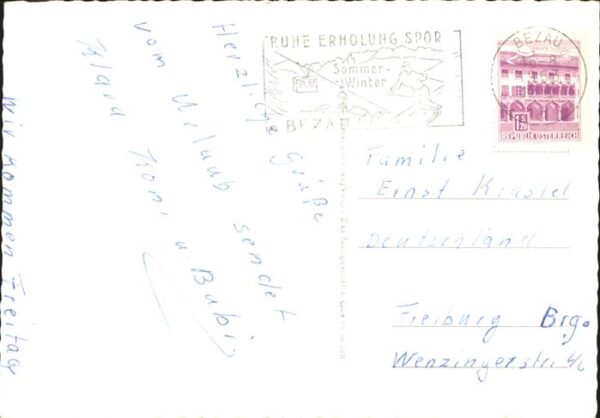 RUHE ERHOLUNG SPOR
Sommer-
Winter
BEZA
BEZAU
1.20
REPUBLIK ÖSTERREICH
Herzliche Grüße
vom Urlaub sendet
Klara Toni u Bubi
Wir kommen Freitag
Familie
Ernst
Deutschland
Freiburg Brg.
Wenzingerstr.